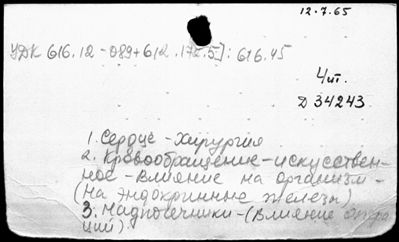 12.7.65
УДК 616.12-089+612.172.5]:616.45
Чит.
Д 34243
1. Сердце - Хирургия
2. Кровообращение - искусствен-
ное - Влияние на организм -
(на эндокринные железы)
3. Надпочечники - (Влияние опера
ций).